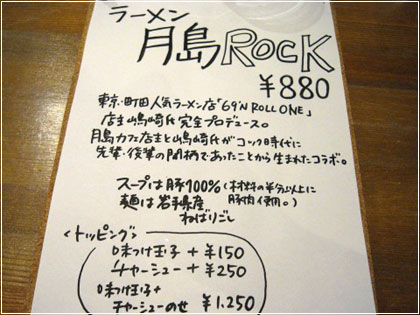 ラーメン
月島ROCK
¥880
東京・町田人気ラーメン店「69'N ROLL ONE」
店主嶋崎氏完全プロデュース。
月島カフェ店主と嶋崎氏がコック時代に
先輩・後輩の間柄であったことから生まれたコラボ。
スープは豚100%(材料の半分以上に
豚肉使用。)
麺は岩手県産
ねばりごし
<トッピング>
味つけ玉子+¥150
チャーシュー+¥250
味つけ玉子+
チャーシューのせ ¥1.250